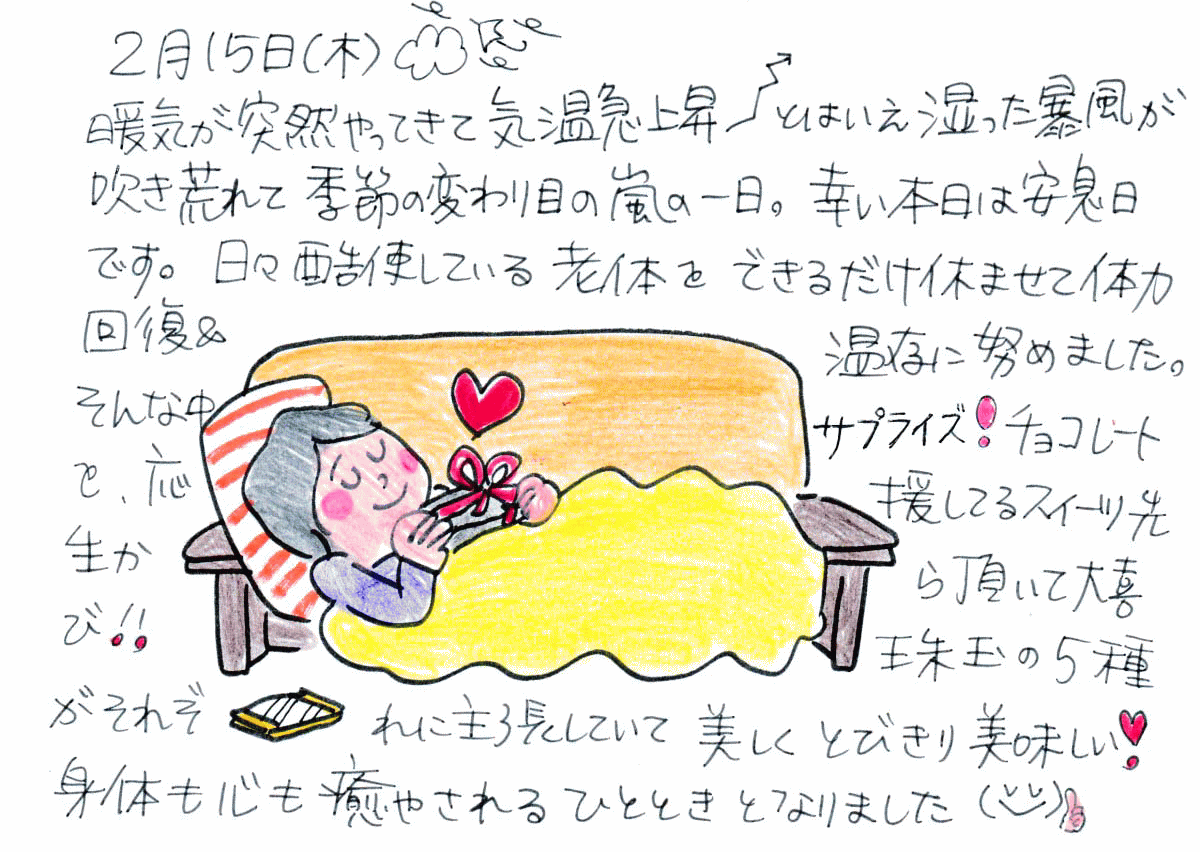 2月15日(木)
暖気が突然やってきて気温急上昇 とはいえ湿った暴風が
吹き荒れて季節の変わり目の嵐の一日。幸い本日は安息日
です。日々酷使している老体をできるだけ休ませて体力
回復& 温存に努めました。
そんな中 サプライズ!チョコレート
を、応 援してるスイーツ先
生か ら頂いて大喜
び!! 珠玉の5種
がそれぞ れに主張していて美しくとびきり美味しい!
身体も心も癒やされるひとときとなりました